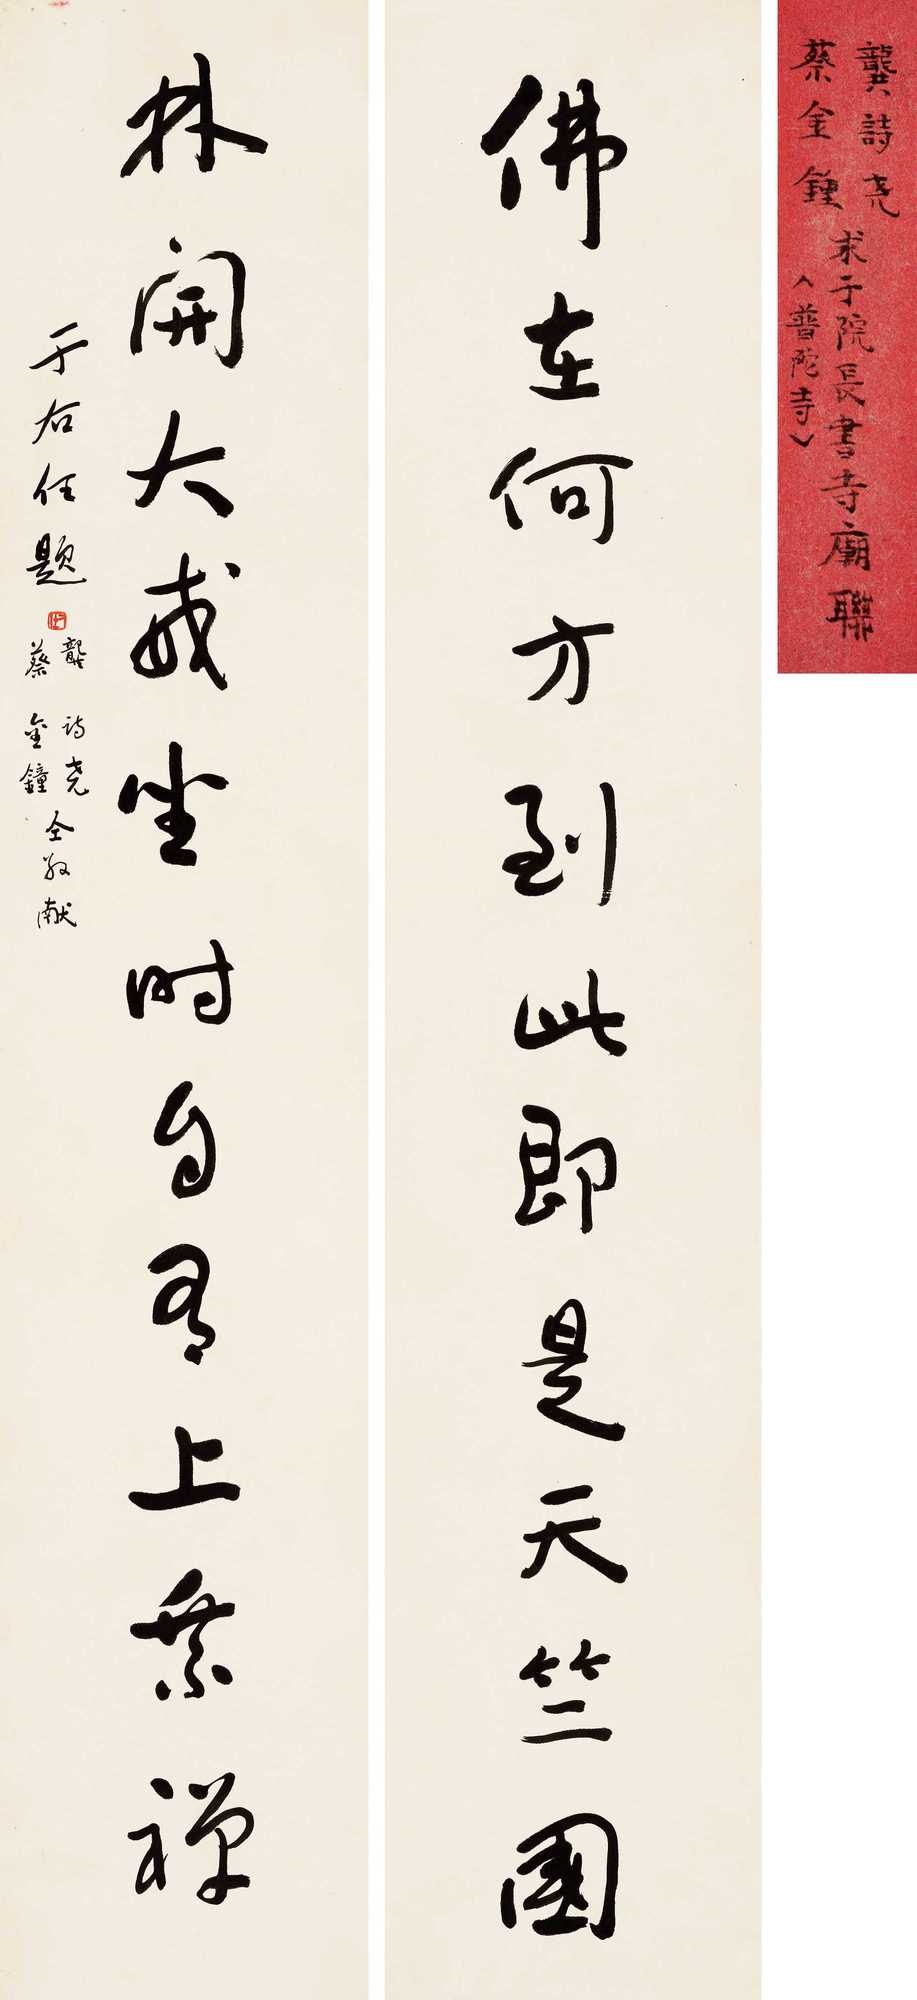 龔詩尧
蔡金鍾
求于院長書寺廟聯
（普陀寺）
佛在何方到此即是天竺國
林開大戒坐時自有上乘禪
于右任題
龔詩尧
蔡金鐘
仝敬献